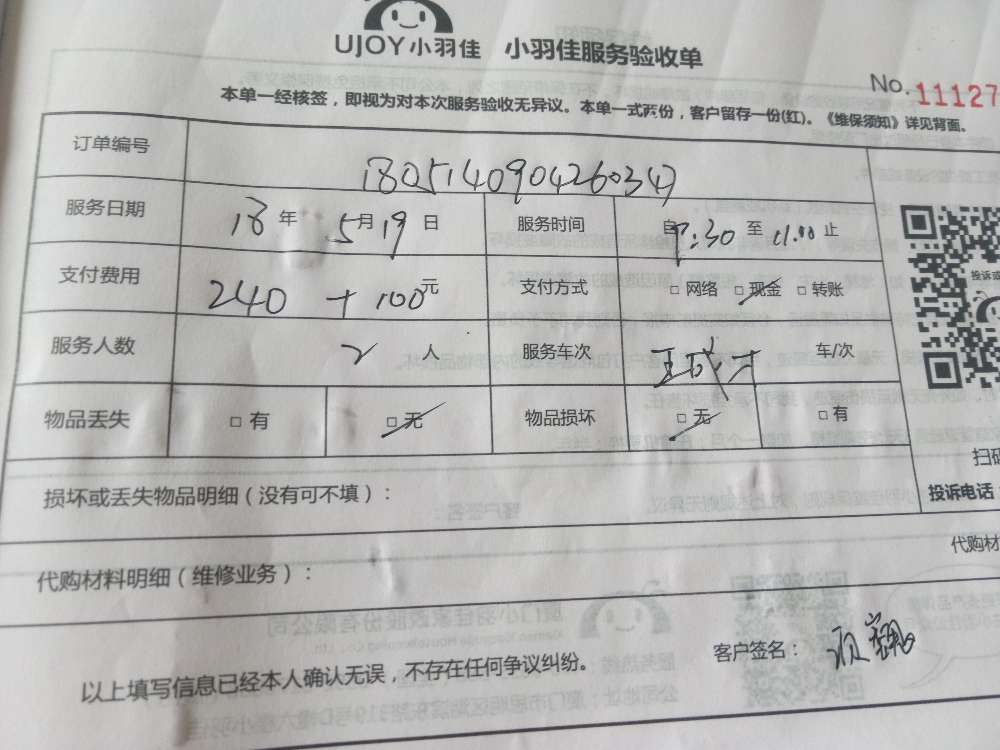 UJOY小羽佳 小羽佳服务验收单
No.11127
本单一经核签，即视为对本次服务验收无异议。本单一式两份，客户留存一份(红)。《维保须知》详见背面。
订单编号 180514090426034
服务日期 18年 5月19日 服务时间 自 :30 至 11:00 止
支付费用 240+100元 支付方式 □网络 □现金 □转账
投诉或
服务人数 2 人 服务车次 车/次
物品丢失 □有 □无 物品损坏 □无 □有
扫码
损坏或丢失物品明细（没有可不填）：
投诉电话：
代购材料明细（维修业务）：
代购材
以上填写信息已经本人确认无误，不存在任何争议纠纷。 客户签名：